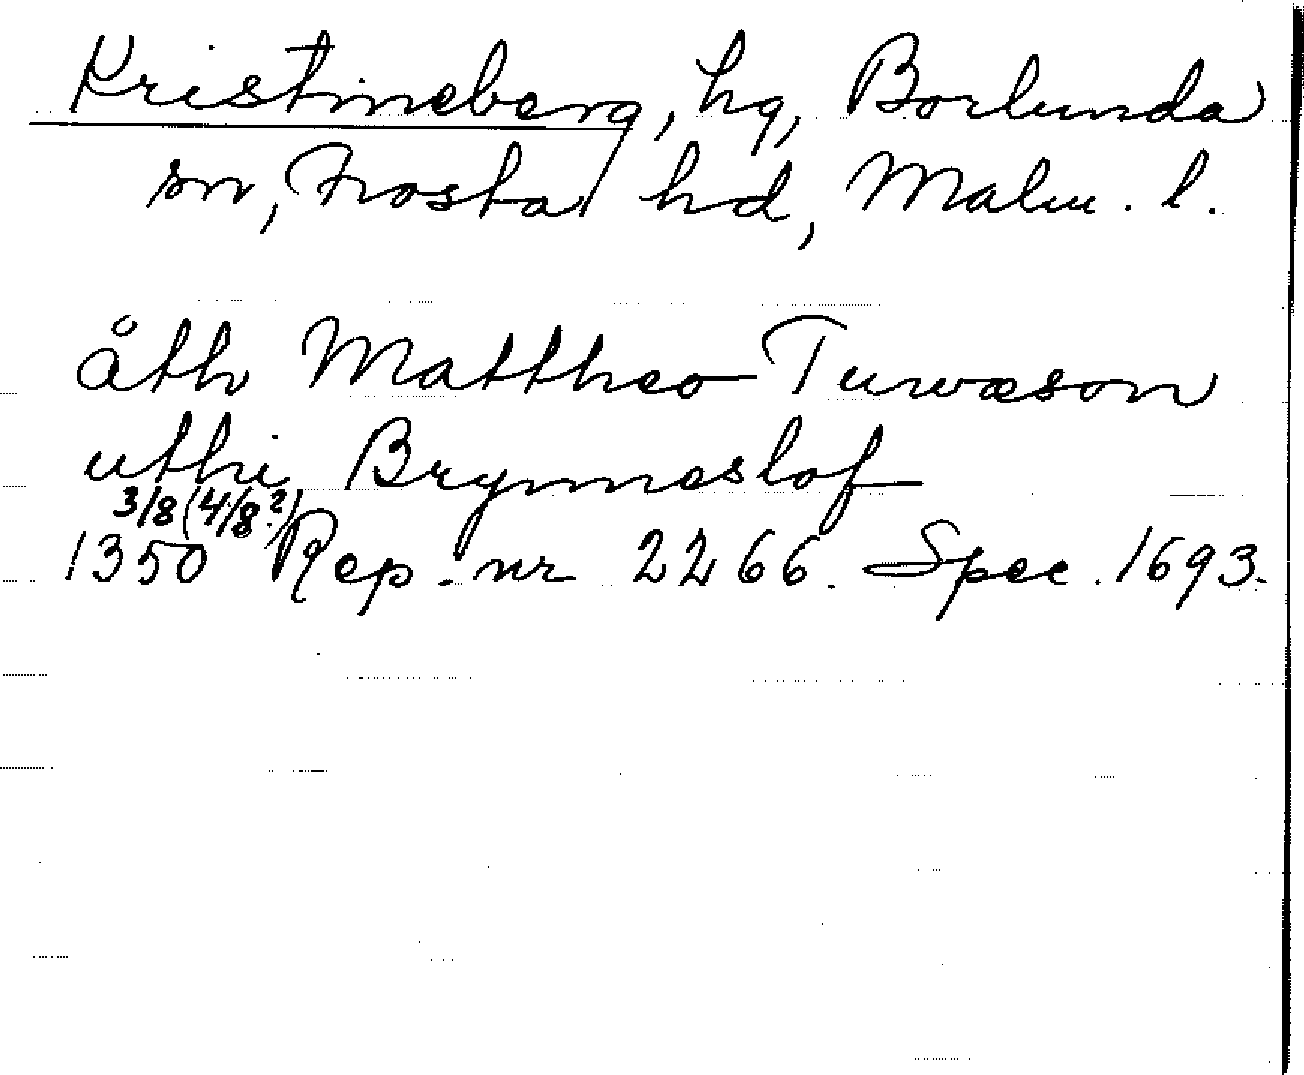 Kristineberg, hg, Borlunda
sn, Frosta hd, Malm. l.
åth Mattheo Tuwæson
uthi Brynneslof
3/8 (4/8?)
1350 Rep. nr 2266. Spec. 1693.